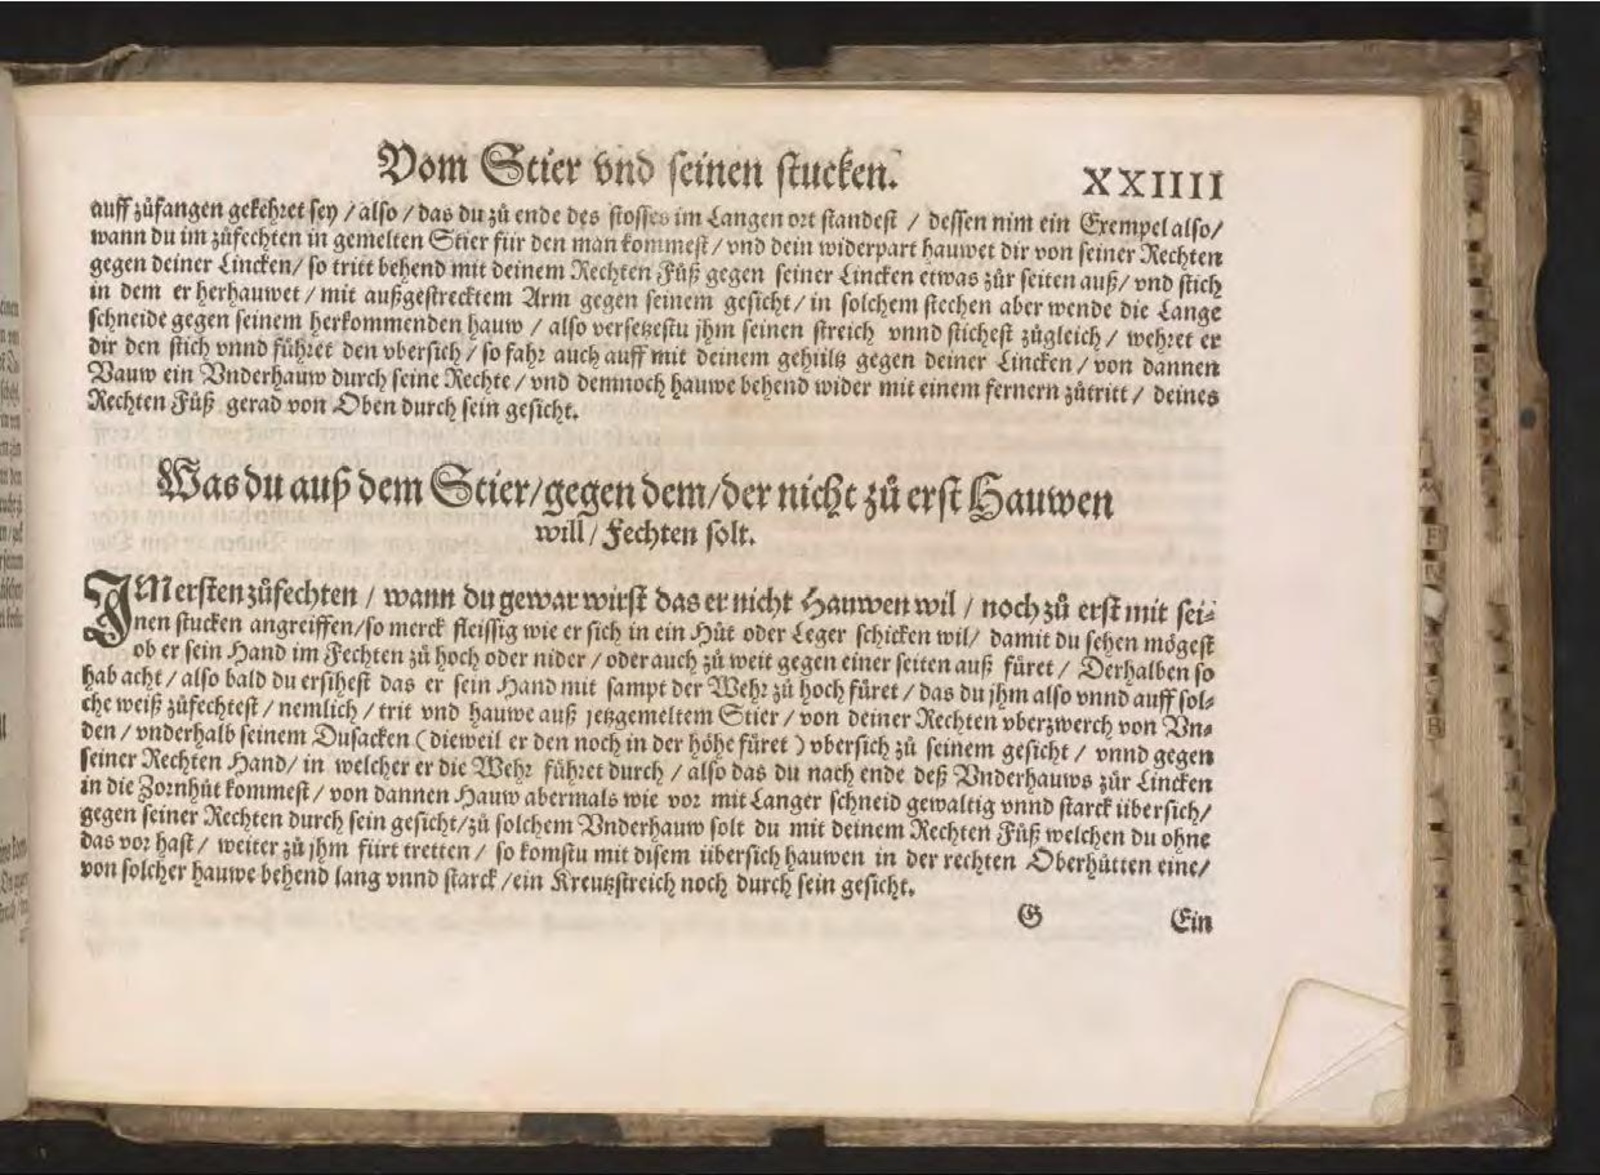 Vom Stier vnd seinen stucken.
XXIIII
auff zůfangen gekehret sey / also / das du zů ende des stosses im Langen ort standest / dessen nim ein Exempel also /
wann du im zůfechten in gemelten Stier für den man kommest / vnd dein widerpart hauwet dir von seiner Rechten
gegen deiner Lincken / so tritt behend mit deinem Rechten Fůß gegen seiner Lincken etwas zůr seiten auß / vnd stich
in dem er herhauwet / mit außgestrecktem Arm gegen seinem gesicht / in solchem stechen aber wende die Lange
schneide gegen seinem herkommenden hauw / also versetzestu jhm seinen streich vnnd stichest zůgleich / wehret er
dir den stich vnnd führet den vbersich / so fahr auch auff mit deinem gehültz gegen deiner Lincken / von dannen
Vauw ein Vnderhauw durch seine Rechte / vnd demnoch hauwe behend wider mit einem fernern zůtritt / deines
Rechten Fůß gerad von Oben durch sein gesicht.
Was du auß dem Stier / gegen dem / der nicht zů erst Hauwen
will / Fechten solt.
IM ersten zůfechten / wann du gewar wirst das er nicht Hauwen wil / noch zů erst mit sei⸗
nen stucken angreiffen / so merck fleissig wie er sich in ein Hůt oder Leger schicken wil / damit du sehen mögest
ob er sein Hand im Fechten zů hoch oder nider / oder auch zů weit gegen einer seiten auß füret / Derhalben so
hab acht / also bald du ersihest das er sein Hand mit sampt der Wehr zů hoch füret / das du jhm also vnnd auff sol⸗
che weiß zůfechtest / nemlich / trit vnd hauwe auß jetzgemeltem Stier / von deiner Rechten vberzwerch von Vn⸗
den / vnderhalb seinem Dusacken ( dieweil er den noch in der höhe füret ) vbersich zů seinem gesicht / vnnd gegen
seiner Rechten Hand / in welcher er die Wehr führet durch / also das du nach ende deß Vnderhauws zůr Lincken
in die Zornhůt kommest / von dannen Hauw abermals wie vor mit Langer schneid gewaltig vnnd starck übersich /
gegen seiner Rechten durch sein gesicht / zů solchem Vnderhauw solt du mit deinem Rechten Fůß welchen du ohne
das vor hast / weiter zů jhm fürt tretten / so komstu mit disem übersich hauwen in der rechten Oberhůtten eine /
von solcher hauwe behend lang vnnd starck / ein Kreutzstreich noch durch sein gesicht.
G
Ein